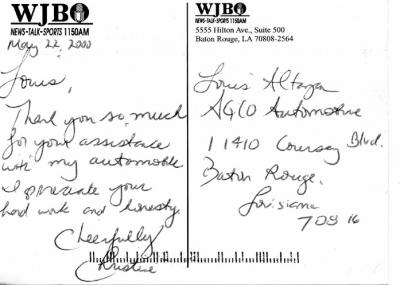 WJBO
NEWS-TALK-SPORTS 1150AM
May 22, 2000
Louis,
Thank you so much
for your assistance
with my automobile
I apreciate your
hard work and honesty.
Cheerfully
Christine
WJBO
NEWS-TALK-SPORTS 1150AM
5555 Hilton Ave., Suite 500
Baton Rouge, LA 70808-2564
Louis Altazan
AGCO Automotive
11410 Coursey Blvd.
Baton Rouge,
Louisiana
70816